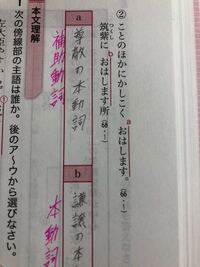 ② ことのほかにかしこくおはします。（66・1）
a
筑紫に、おはします所（68・1）
つくし
b
a
尊敬の本動詞
補助動詞
b
謙譲の本
本動詞
本文理解
1 次の傍線部の主語は誰か。後のア〜ウから選びなさい。
①